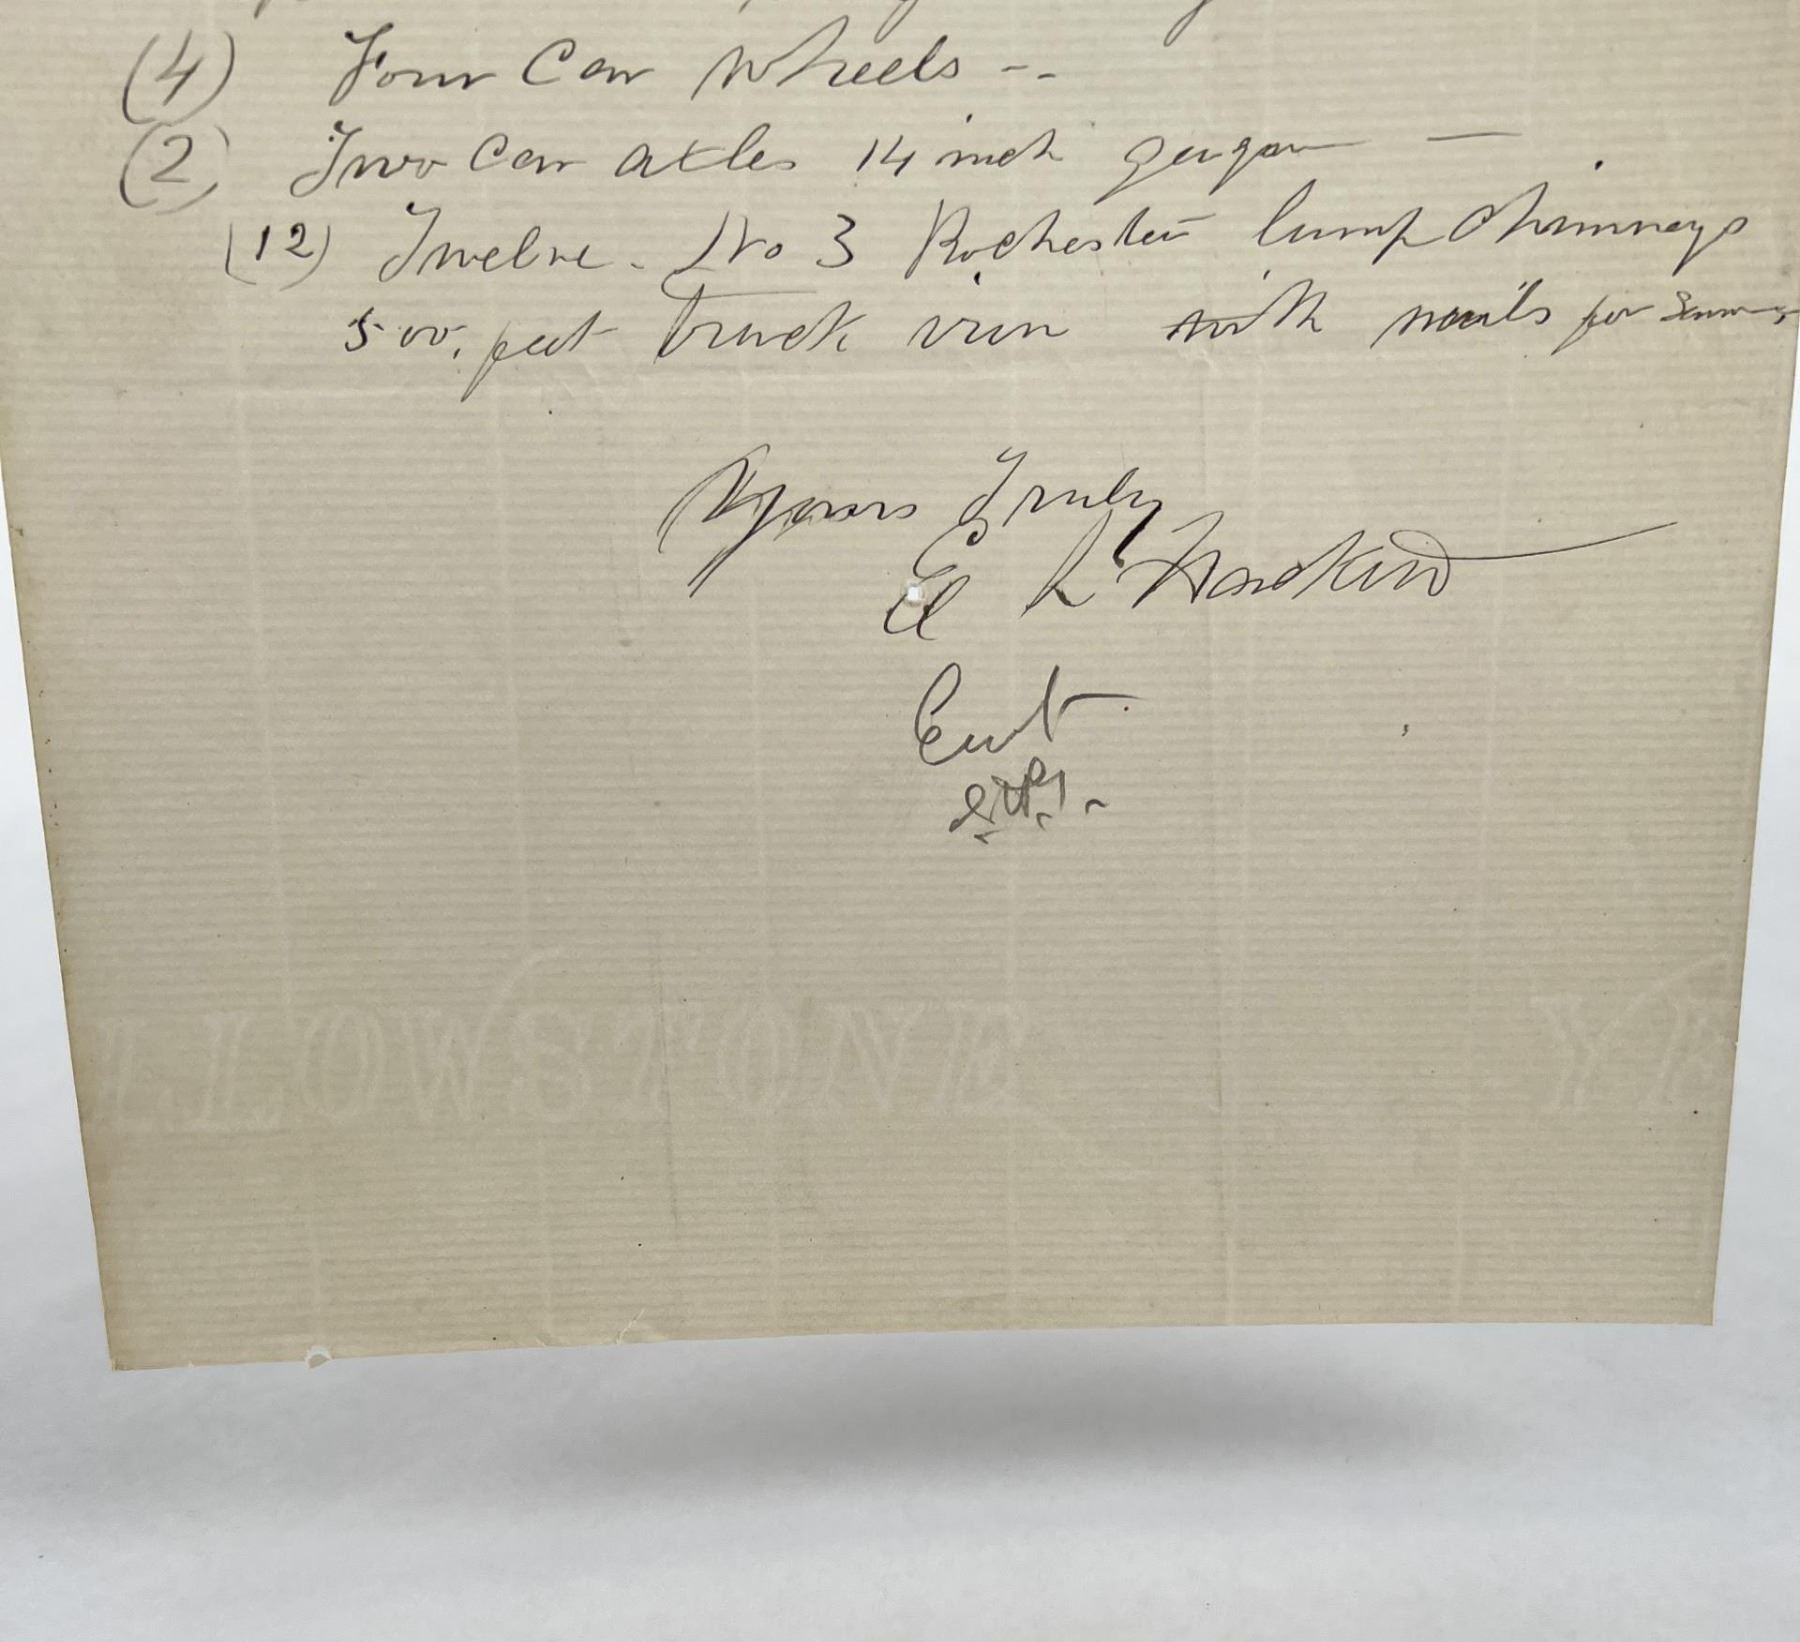 (4) Four Car Wheels --
(2) Two Car axles 14 inch —
(12) Twelve - No 3 Rochester lamp Chimneys
500, feet Track iron with nails for
Yours Truly
E L
LLOWSTONE